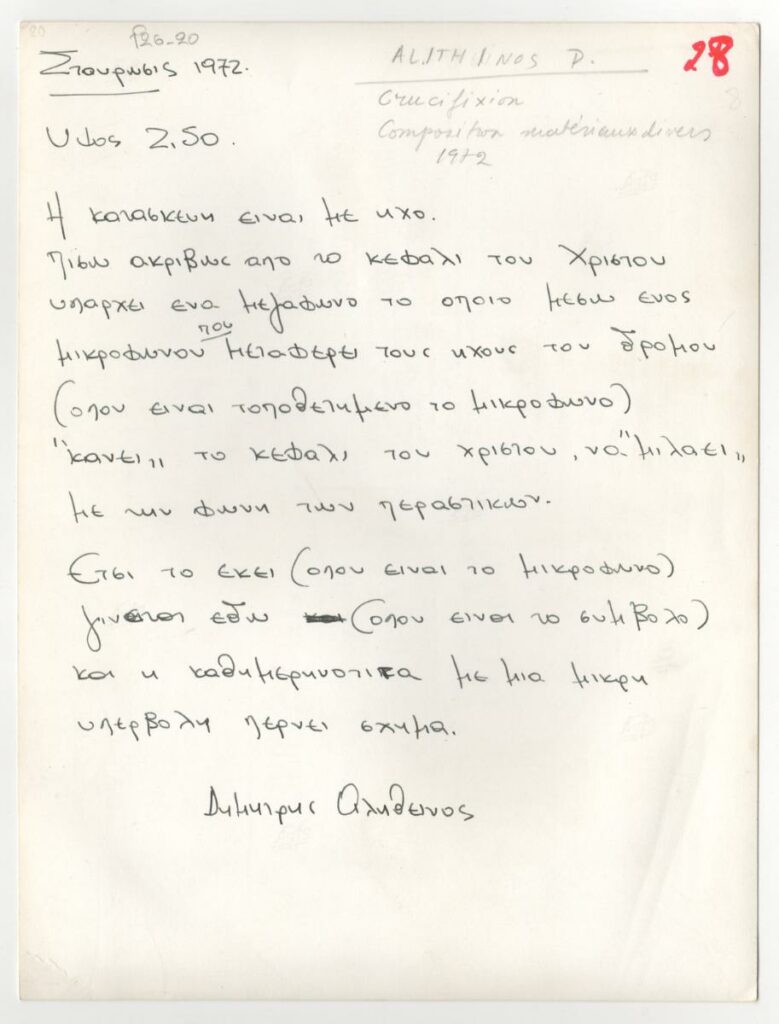 20
f26-20
Σταυρωσις 1972.
ALITHINOS D.
28
Crucifixion
Composition matériaux divers
1972
Υψος 2,50.
Η κατασκευη ειναι με ηχο.
Πισω ακριβως απο το κεφαλι του Χριστου
υπαρχει ενα μεγαφωνο το οποιο μεσω ενος
μικροφωνου που μεταφερει τους ηχους του δρομου
(οπου ειναι τοποθετημενο το μικροφωνο)
"κανει„ το κεφαλι του χριστου, να "μιλαει„
με την φωνη των περαστικων.
Ετσι το εκει (οπου ειναι το μικροφωνο)
γινεται εδω (οπου ειναι το συμβολο)
και η καθημερηνοτιτα με μια μικρη
υπερβολη περνει σχημα.
Δημητρης Αληθεινος